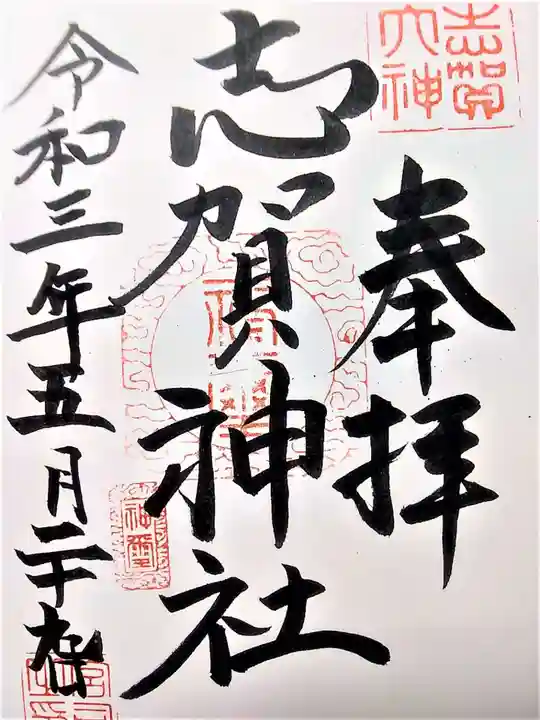 志賀
大神
奉拝
志賀神社
令和三年五月二十
神璽